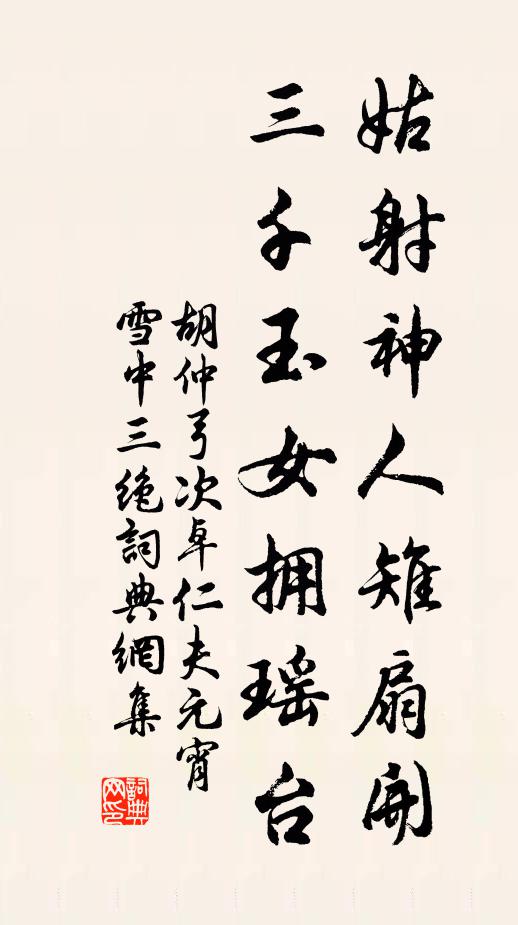 姑射神人雉扇開
三千玉女拥瑶台
胡仲弓次卓仁夫元宵
雪中三絶詞典網集
詞典
网印